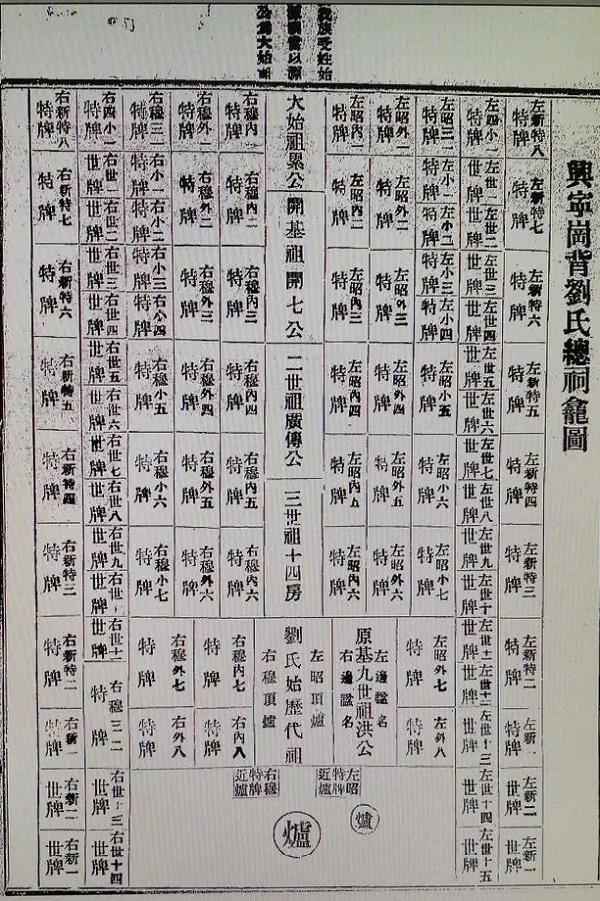 我族受姓始
公爲大始祖
興寧崗背劉氏總祠龕圖
左新特八 特牌
左新特七 特牌
左新特六 特牌
左新特五 特牌
左新特四 特牌
左新特三 特牌
左新特二 特牌
左新一 特牌
左新二 世牌
左新一 世牌
左四小一 特牌
左世一 世牌
左世二 世牌
左世三 世牌
左世四 世牌
左世五 世牌
左世六 世牌
左世七 世牌
左世八 世牌
左世九 世牌
左世十 世牌
左世十一 世牌
左世十二 世牌
左世十三 世牌
左世十四 世牌
左世十五 世牌
左昭三一 特牌
左小一 特牌
左小二 特牌
左小三 特牌
左小四 特牌
左昭小五 特牌
左昭小六 特牌
左昭小七 特牌
左昭外一 特牌
左昭外二 特牌
左昭外三 特牌
左昭外四 特牌
左昭外五 特牌
左昭外六 特牌
左昭內一 特牌
左昭內二 特牌
左昭內三 特牌
左昭內四 特牌
左昭內五 特牌
左昭內六 特牌
左昭外七 特牌
左外八 特牌
大始祖累公
開基祖開七公
二世祖廣傳公
三世祖十四房
左邊諡名
原基九世祖洪公
右邊諡名
左昭頂爐
劉氏始歷代祖
右穆頂爐
左昭特牌近爐
爐
右穆特牌近爐
爐
右穆內一 特牌
右穆內二 特牌
右穆內三 特牌
右穆內四 特牌
右穆內五 特牌
右穆內六 特牌
右穆內七 特牌
右內八 特牌
右穆外一 特牌
右穆外二 特牌
右穆外三 特牌
右穆外四 特牌
右穆外五 特牌
右穆外六 特牌
右穆外七 特牌
右外八 特牌
右穆三一 特牌
右小一 特牌
右小二 特牌
右小三 特牌
右小四 特牌
右穆小五 特牌
右穆小六 特牌
右穆小七 特牌
右四小一 特牌
右世一 世牌
右世二 世牌
右世三 世牌
右世四 世牌
右世五 世牌
右世六 世牌
右世七 世牌
右世八 世牌
右世九 世牌
右世十 世牌
右世十一 世牌
右穆三二 特牌
右世十三 世牌
右世十四 世牌
右新特八 特牌
右新特七 特牌
右新特六 特牌
右新特五 特牌
右新特四 特牌
右新特三 特牌
右新特二 特牌
右新一 特牌
右新二 世牌
右新一 世牌